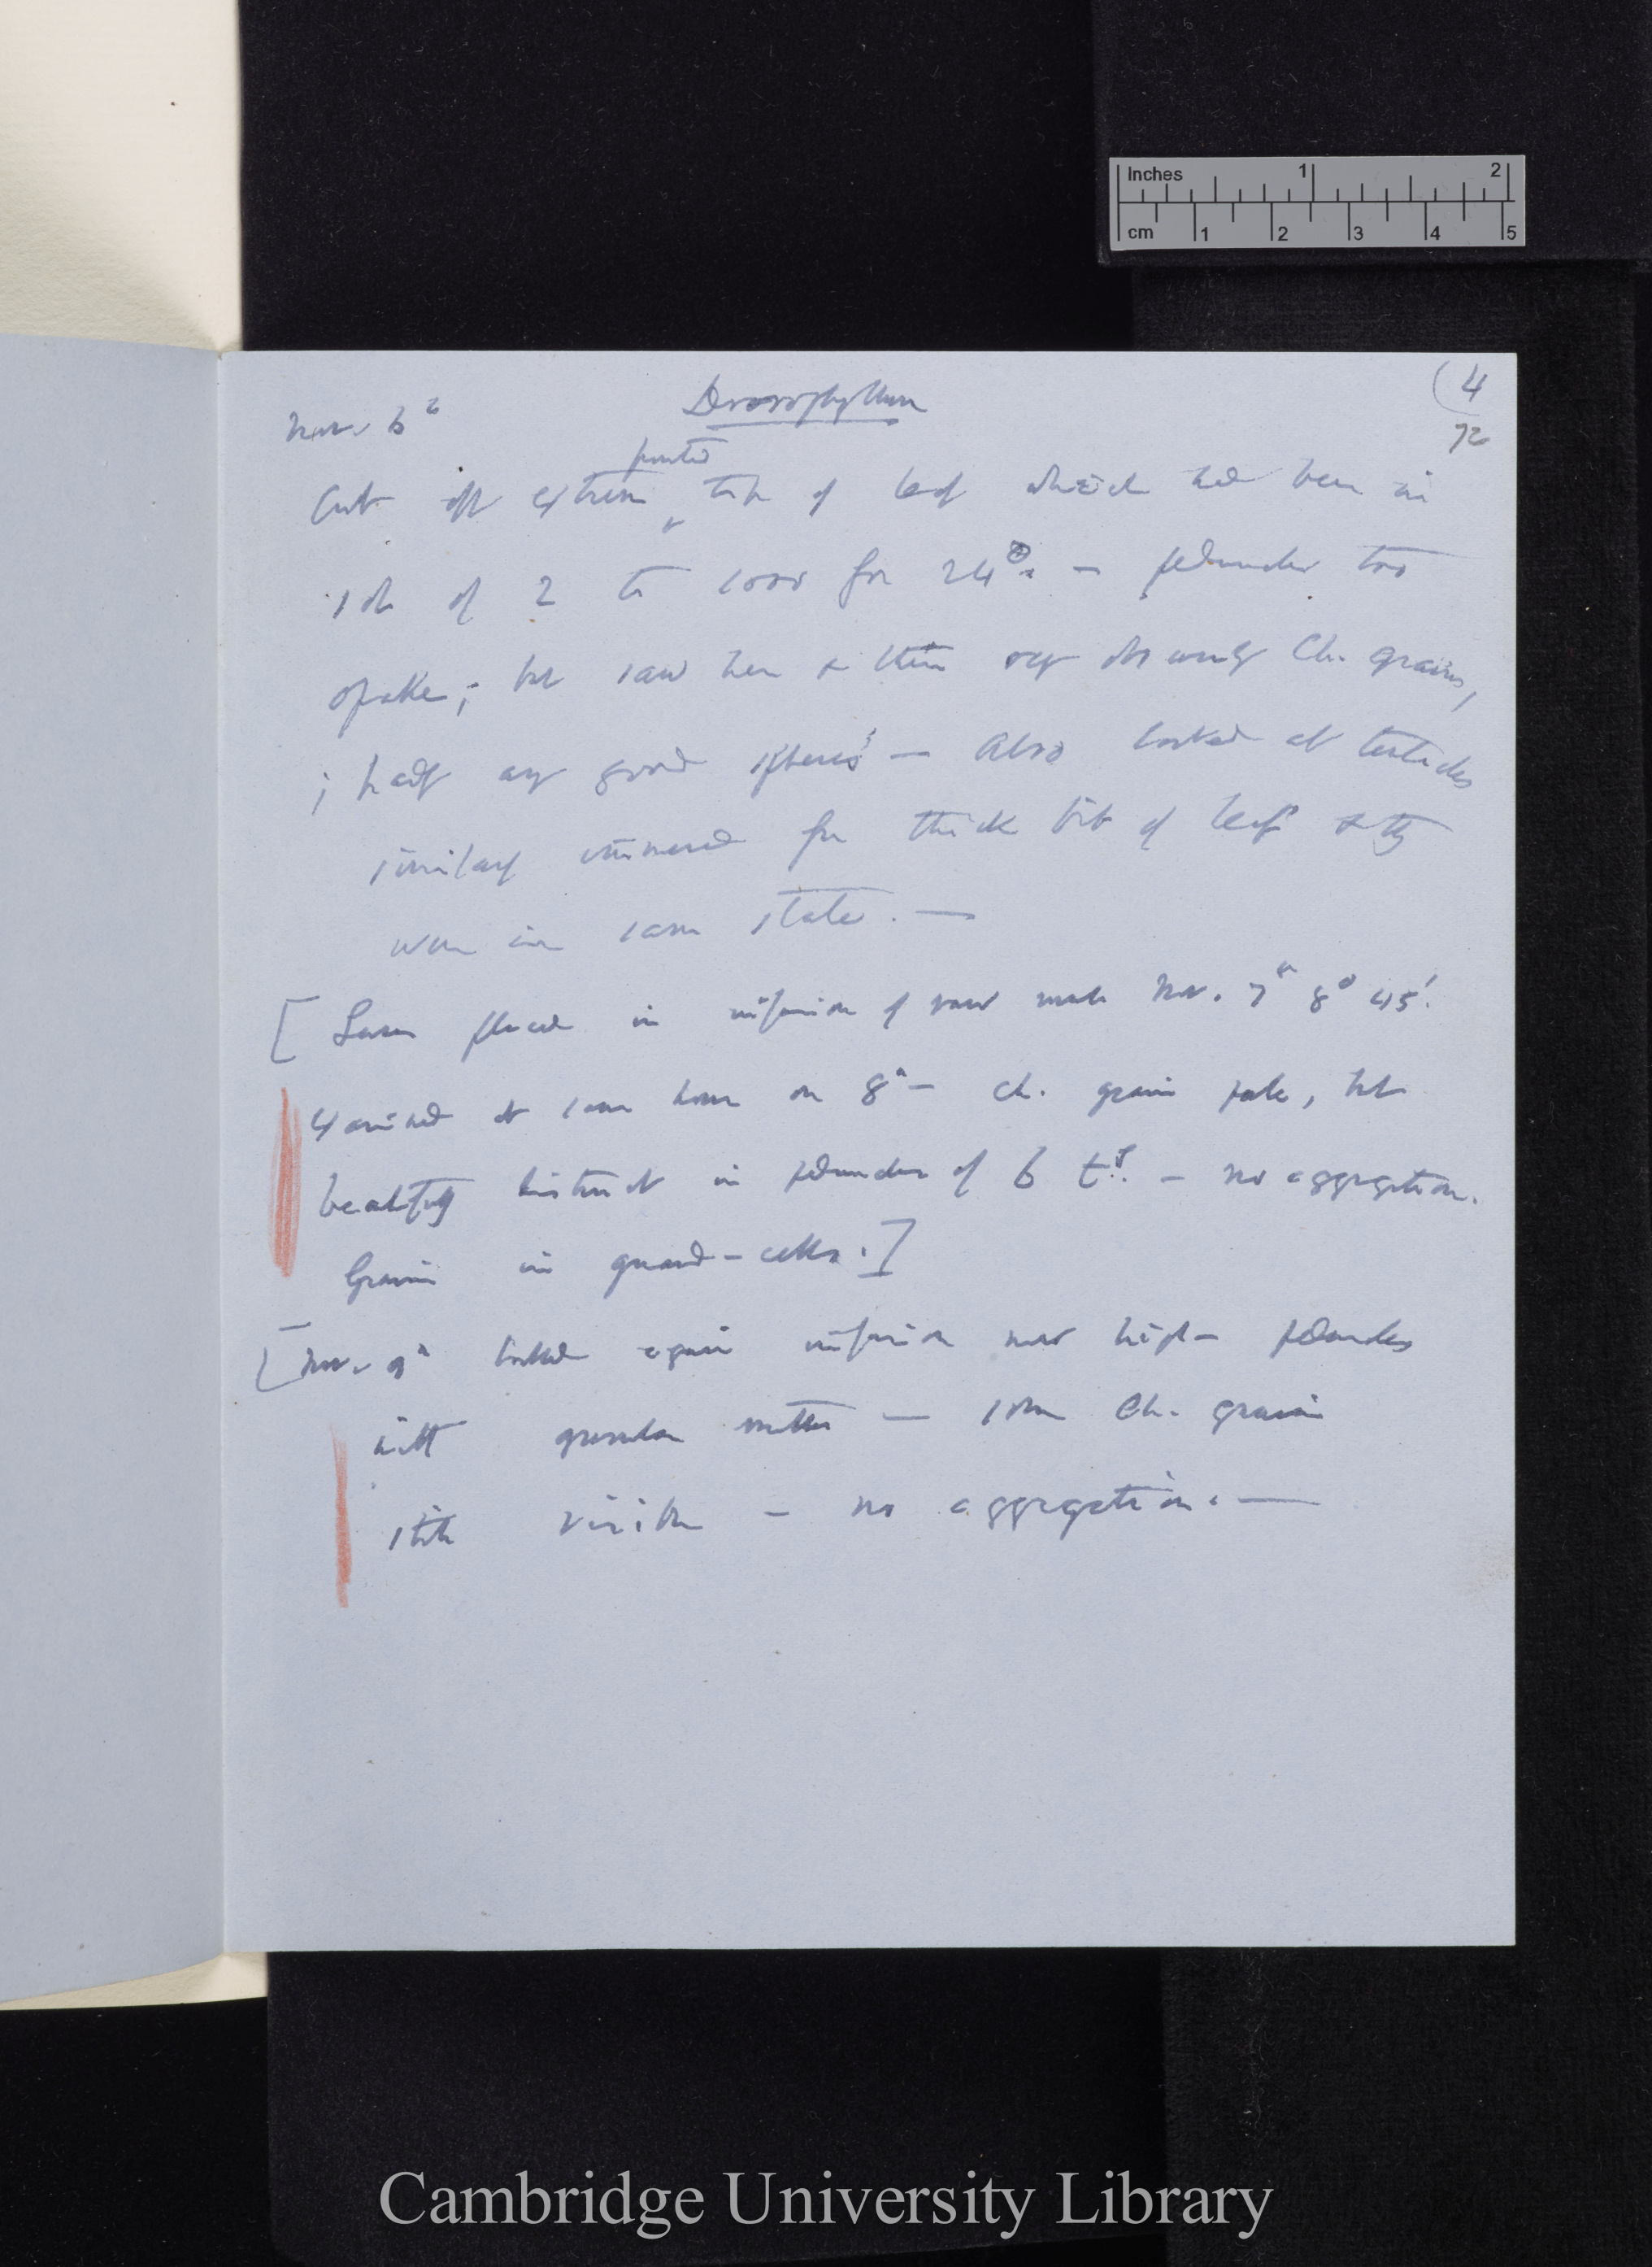 Inches 1 2
cm 1 2 3 4 5
(4
72
Drosophyllum
Nov. 6th
pointed
Cut off extreme tip of leaf which had been in
sol of 2 to 1000 for 24° — peduncles too
opake; but saw here & there very obscurely Ch. grains,
; hardly any good spheres — Also looked at tentacles
similarly immersed for thick bit of leaf & they
were in same state. —
[Leaves placed in infusion of raw meat Nov. 7th 8° 45'.
Examined at same hour on 8th — Ch. grains pale, but
beautifully distinct in peduncles of 6 t.s. — no aggregation.
Grains in guard-cells.]
[Nov. 9th looked again infusion now high — peduncles
with granular matter — some Ch. grains
still visible — no aggregation. —
Cambridge University Library